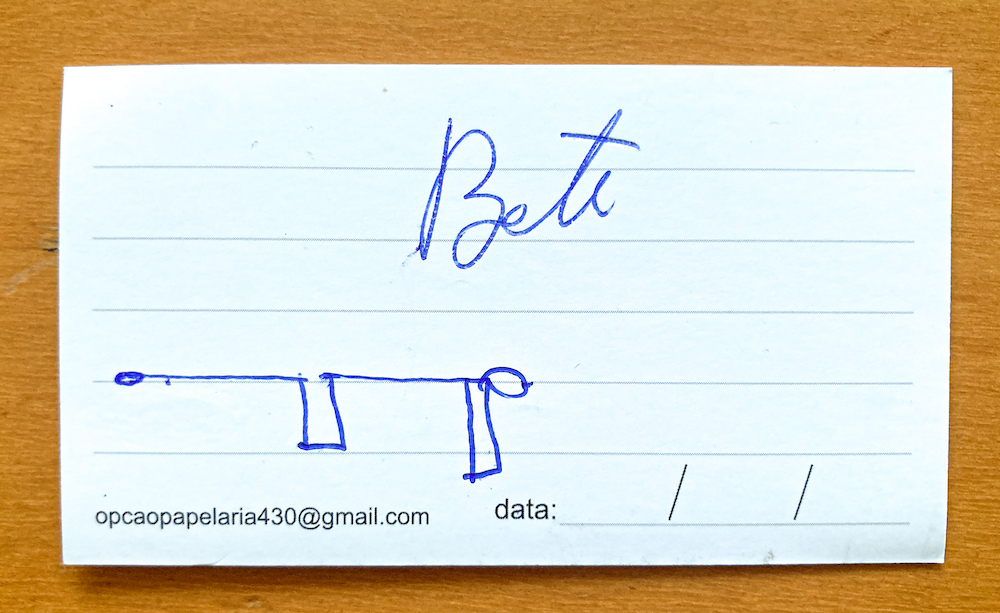 Beti
opcaopapelaria430@gmail.com
data: / /